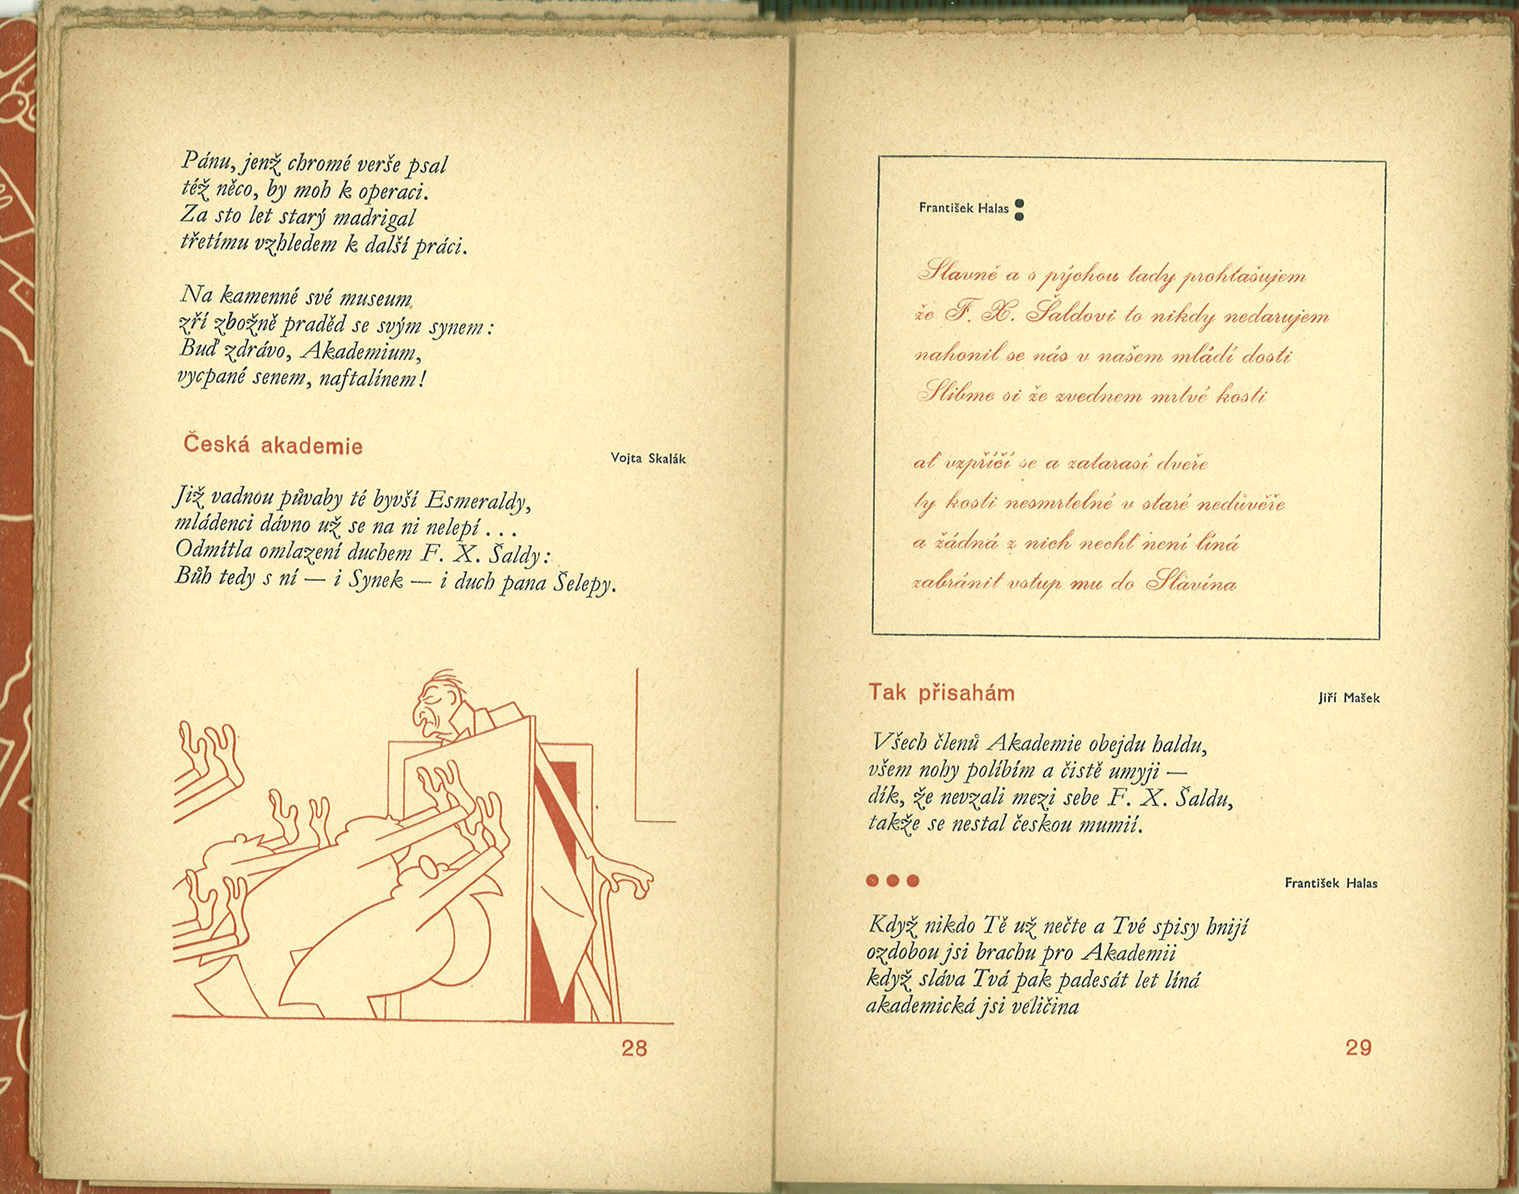 Pánu, jenž chromé verše psal
též něco, by moh k operaci.
Za sto let starý madrigal
třetímu vzhledem k další práci.
Na kamenné své museum
zří zbožně praděd se svým synem:
Buď zdrávo, Akademium,
vycpané senem, naftalínem!
Česká akademie
Vojta Skalák
Již vadnou půvaby té byvší Esmeraldy,
mládenci dávno už se na ni nelepí . . .
Odmítla omlazení duchem F. X. Šaldy:
Bůh tedy s ní — i Synek — i duch pana Šelepy.
28
František Halas :
Slavně a s pýchou tady prohlašujem
že F. X. Šaldovi to nikdy nedarujem
nahonil se nás v našem mládí dosti
Slibme si že zvednem mrtvé kosti
ať vzpříčí se a zatarasí dveře
ty kosti nesmrtelné v staré nedůvěře
a žádná z nich nechť není líná
zabránit vstup mu do Slavína
Tak přisahám
Jiří Mašek
Všech členů Akademie obejdu haldu,
všem nohy políbím a čistě umyji —
dík, že nevzali mezi sebe F. X. Šaldu,
takže se nestal českou mumií.
●●●
František Halas
Když nikdo Tě už nečte a Tvé spisy hnijí
ozdobou jsi brachu pro Akademii
když sláva Tvá pak padesát let líná
akademická jsi veličina
29